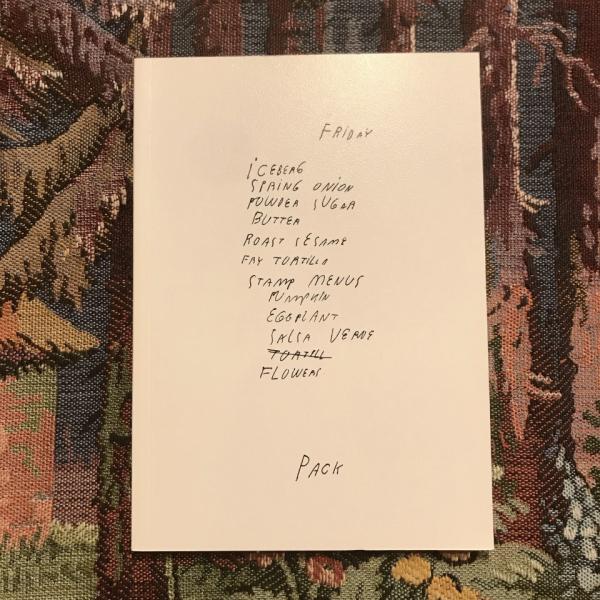 FRIDAY
ICEBERG
SPRING ONION
POWDER SUGAR
BUTTER
ROAST SESAME
FRY TORTILLA
STAMP MENUS
PUMPKIN
EGGPLANT
SALSA VERDE
TORTILL
FLOWERS
PACK